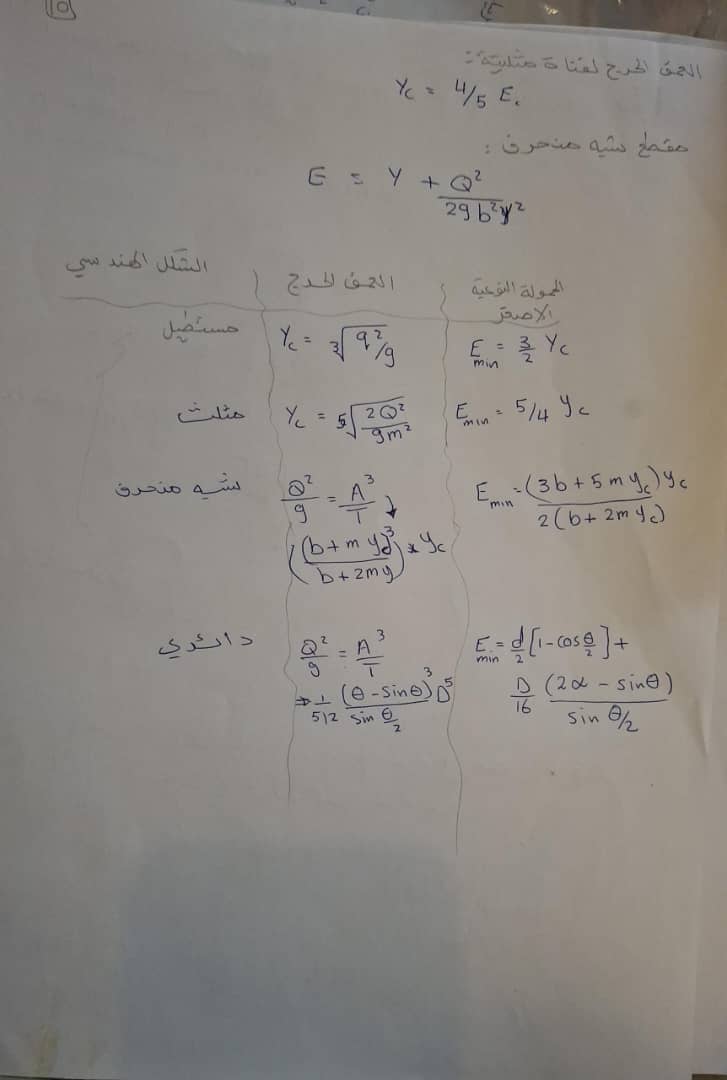 10
العمق الحرج لقناة مثلثية :-
Yc = 4/5 E.
مقطع شبه منحرف :
E = Y + Q²/(2g b²y²)
الشكل الهندسي | العمق الحرج | الحمولة النوعية الاصغر
مستطيل | Yc = ∛(q²/g) | Emin = 3/2 Yc
مثلث | Yc = ⁵√(2Q²/gm²) | Emin = 5/4 yc
شبه منحرف | Q²/g = A³/T ↓ ((b+m yc)³/(b+2my)) * yc | Emin = (3b+5m yc) yc / 2(b+2m yc)
دائري | Q²/g = A³/T ⇒ 1/512 (θ - sinθ)³/(sin θ/2) D⁵ | Emin = d/2 [1-cos θ/2] + D/16 (2α - sinθ)/(sin θ/2)